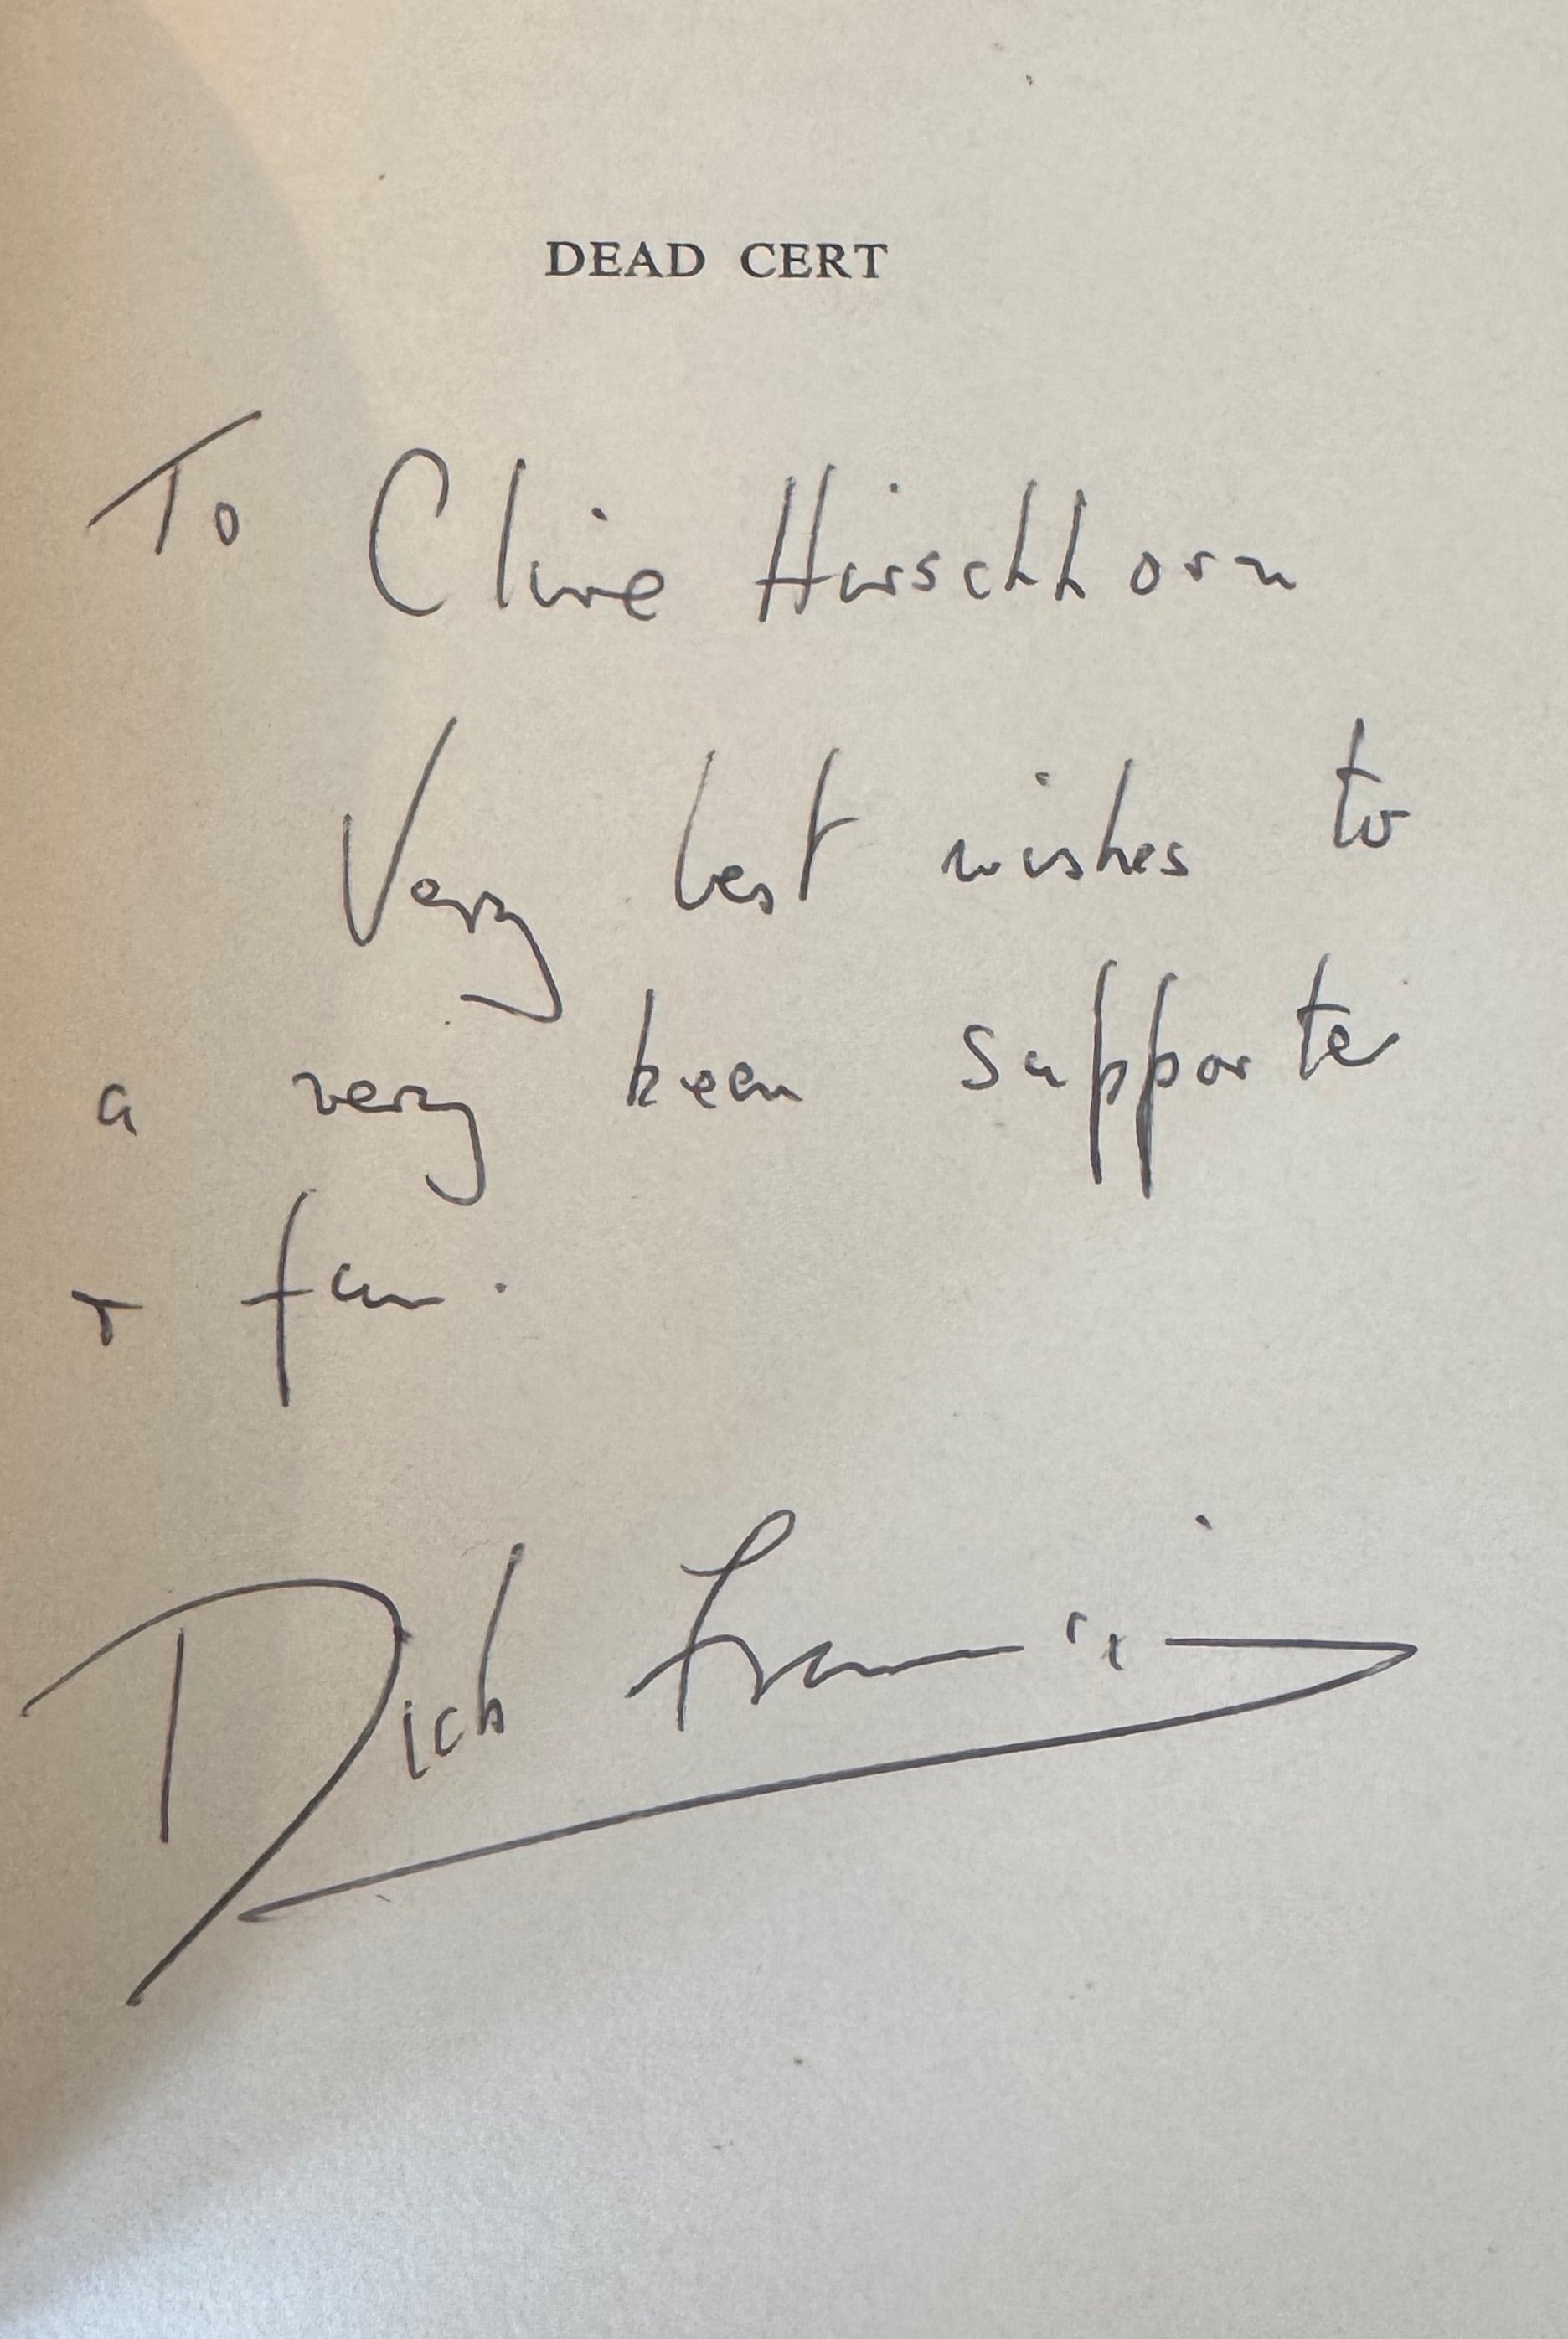 DEAD CERT
To Clive Hirschhorn
Very best wishes to
a very keen supporter
+ fan.
Dick Francis